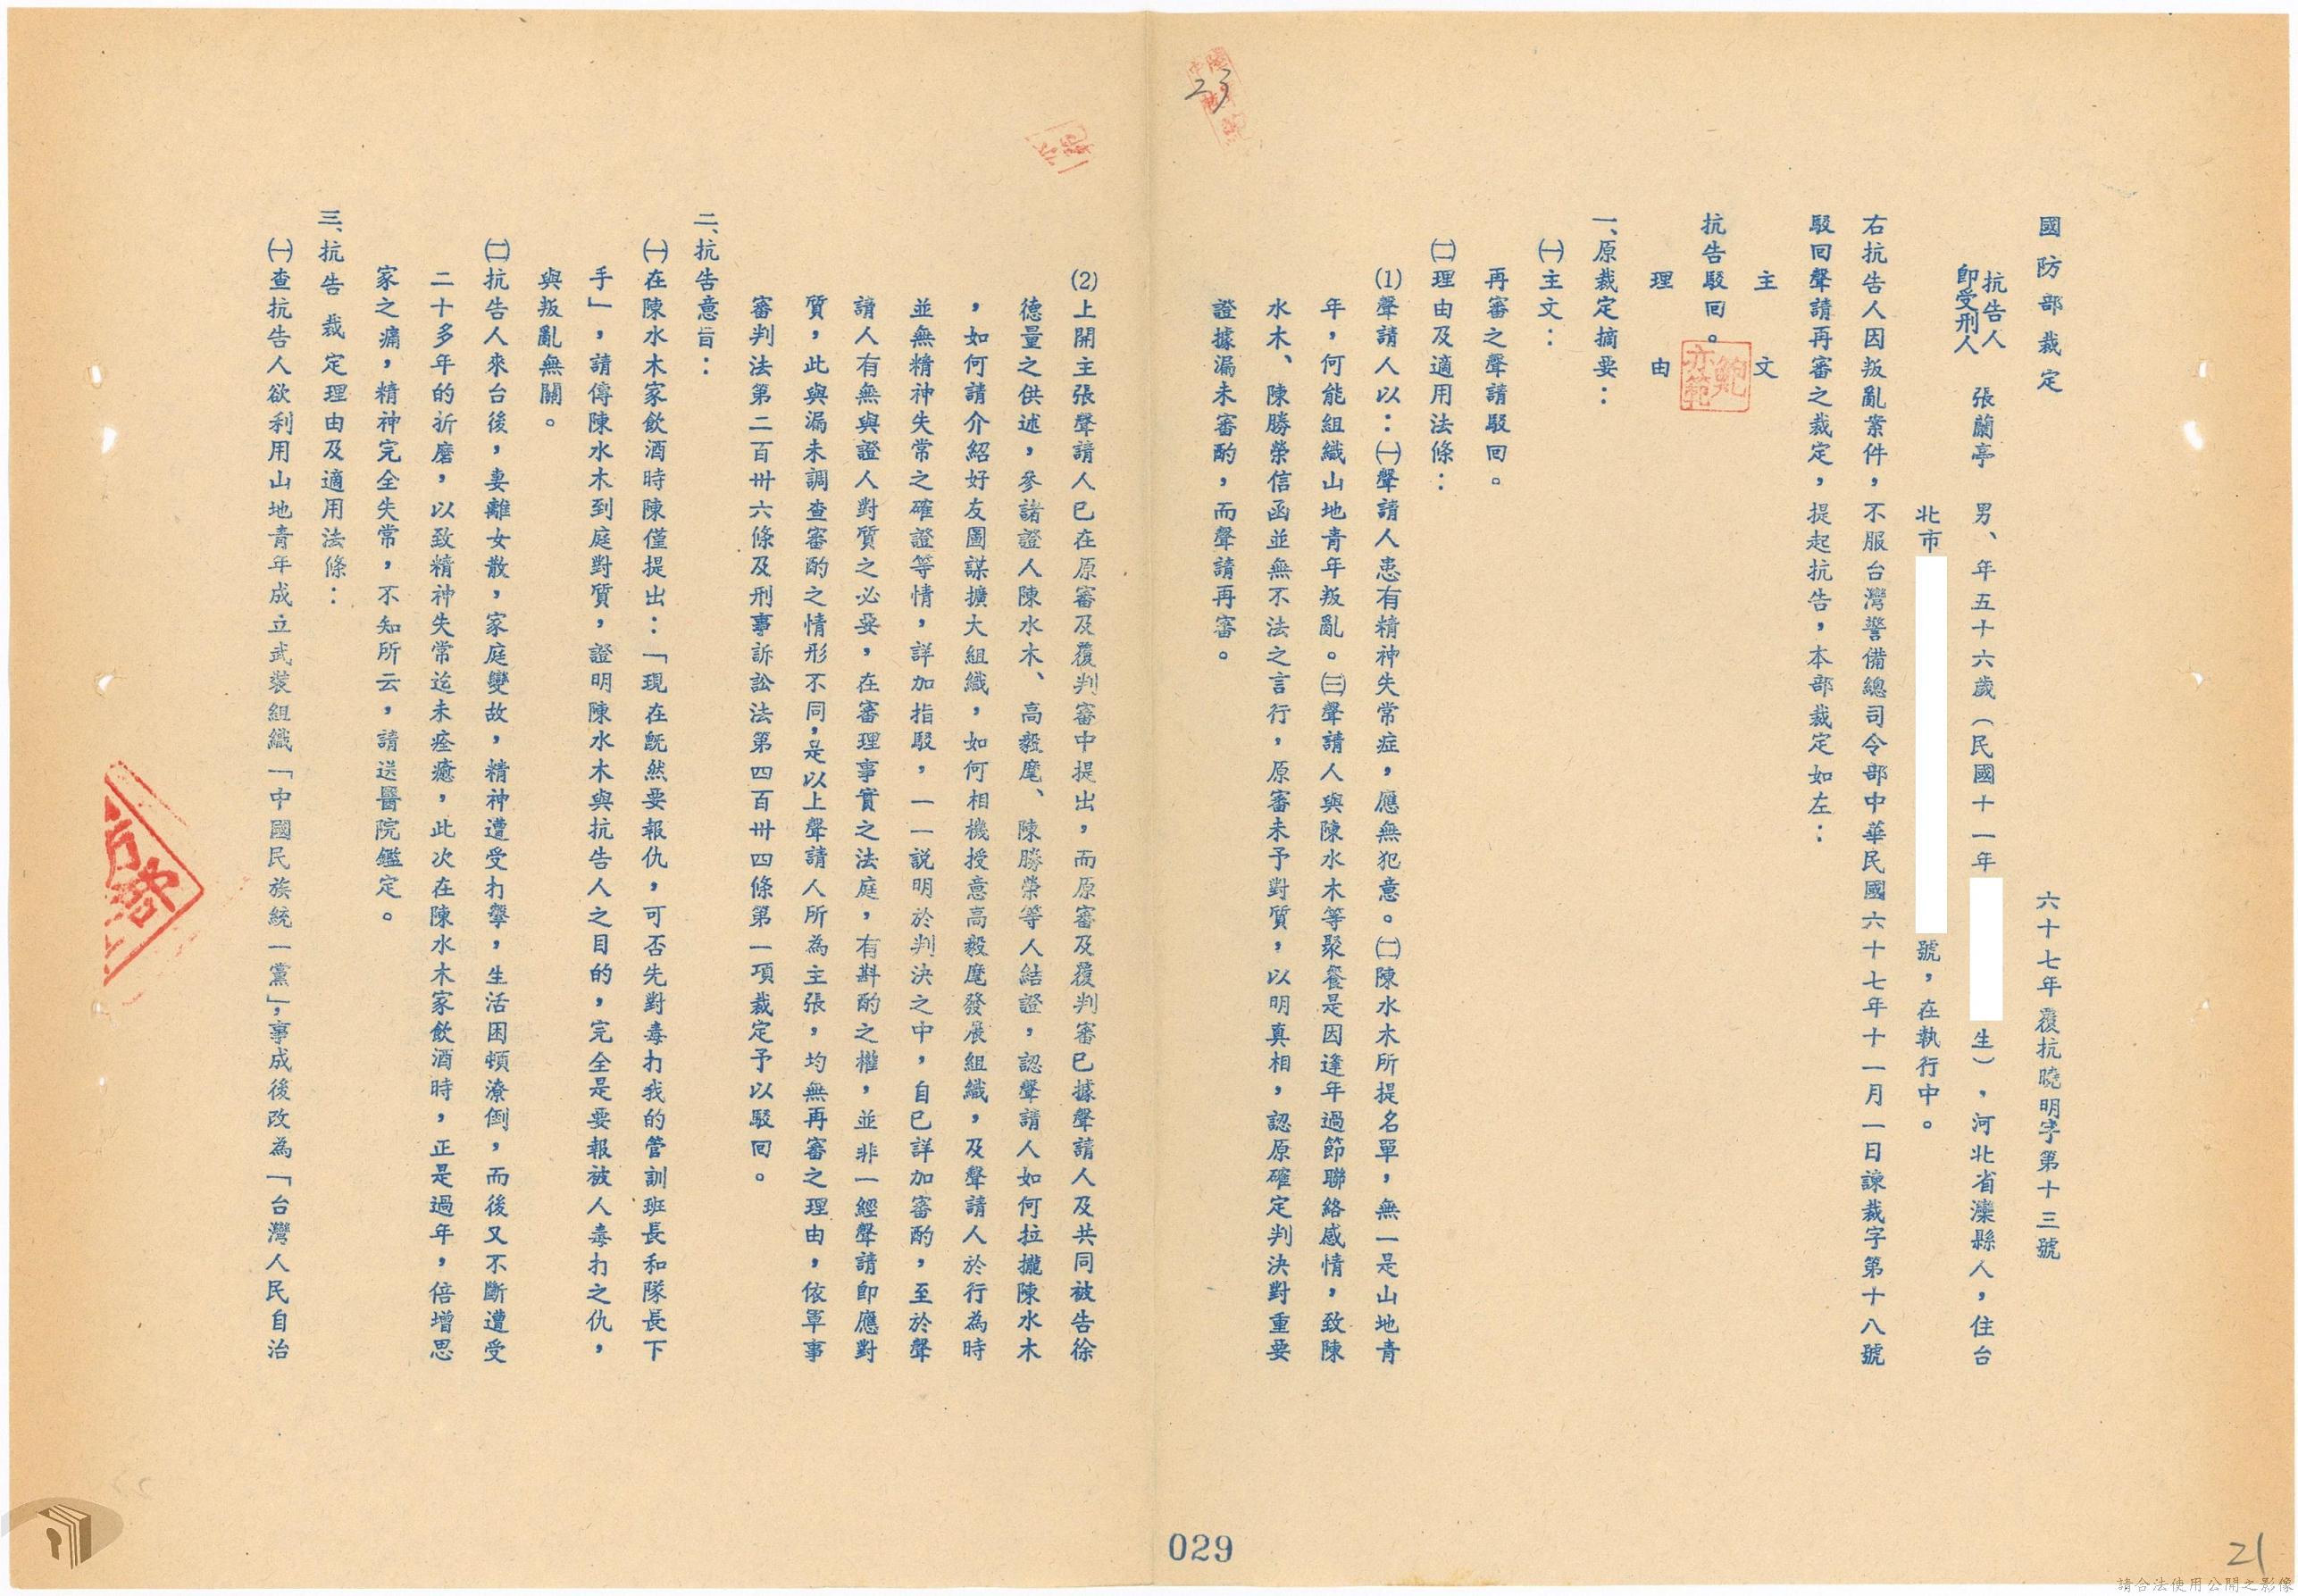 國防部裁定
六十七年覆抗曉明字第十三號
抗告人
即受刑人
張蘭亭 男、年五十六歲（民國十一年
生），河北省灤縣人，住台
北市
號，在執行中。
右抗告人因叛亂案件，不服台灣警備總司令部中華民國六十七年十一月一日諫裁字第十八號
駁回聲請再審之裁定，提起抗告，本部裁定如左：
主文
抗告駁回。
理由
一、原裁定摘要：
㈠主文：
再審之聲請駁回。
㈡理由及適用法條：
⑴聲請人以：㈠聲請人患有精神失常症，應無犯意。㈡陳水木所提名單，無一是山地青
年，何能組織山地青年叛亂。㈢聲請人與陳水木等聚餐是因逢年過節聯絡感情，致陳
水木、陳勝榮信函並無不法之言行，原審未予對質，以明真相，認原確定判決對重要
證據漏未審酌，而聲請再審。
⑵上開主張聲請人已在原審及覆判審中提出，而原審及覆判審已據聲請人及共同被告徐
德量之供述，參諸證人陳水木、高毅麾、陳勝榮等人結證，認聲請人如何拉攏陳水木
，如何請介紹好友圖謀擴大組織，如何相機授意高毅麾發展組織，及聲請人於行為時
並無精神失常之確證等情，詳加指駁，一一說明於判決之中，自已詳加審酌，至於聲
請人有無與證人對質之必要，在審理事實之法庭，有斟酌之權，並非一經聲請即應對
質，此與漏未調查審酌之情形不同，是以上聲請人所為主張，均無再審之理由，依軍事
審判法第二百卅六條及刑事訴訟法第四百卅四條第一項裁定予以駁回。
二、抗告意旨：
㈠在陳水木家飲酒時陳僅提出：「現在既然要報仇，可否先對毒打我的管訓班長和隊長下
手」，請傳陳水木到庭對質，證明陳水木與抗告人之目的，完全是要報被人毒打之仇，
與叛亂無關。
㈡抗告人來台後，妻離女散，家庭變故，精神遭受打擊，生活困頓潦倒，而後又不斷遭受
二十多年的折磨，以致精神失常迄未痊癒，此次在陳水木家飲酒時，正是過年，倍增思
家之痛，精神完全失常，不知所云，請送醫院鑑定。
三、抗告裁定理由及適用法條：
㈠查抗告人欲利用山地青年成立武裝組織「中國民族統一黨」，事成後改為「台灣人民自治
鮑亦範
23
029
21
請合法使用公開之影像